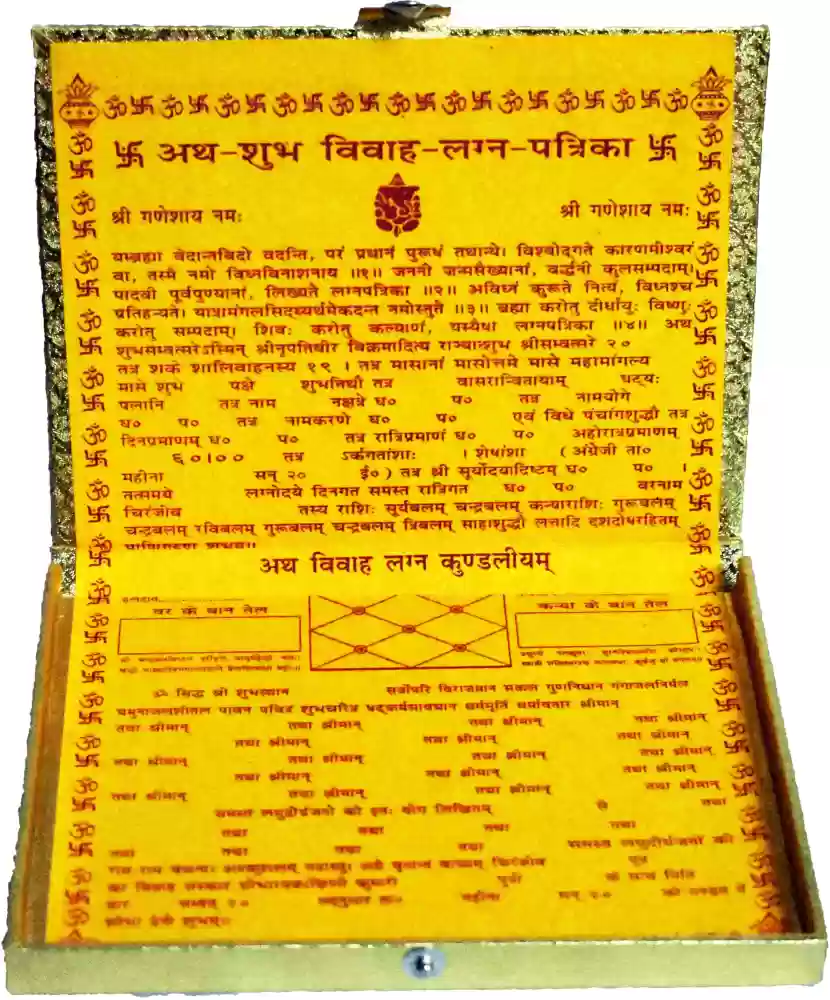 ॐ 卐 ॐ 卐 ॐ 卐 ॐ 卐 ॐ 卐 ॐ 卐 ॐ 卐 ॐ 卐 ॐ 卐 ॐ 卐 ॐ
卐 अथ-शुभ विवाह-लग्न-पत्रिका 卐
श्री गणेशाय नमः श्री गणेशाय नमः
यम्ब्रह्मा वेदान्तविदो वदन्ति, परं प्रधानं पुरूषं तथान्ये। विश्वोद्गते कारणमीश्वरं
वा, तस्मै नमो विघ्नविनाशनाय ॥१॥ जननी जन्मसौख्यानां, वर्द्धनी कुलसम्पदाम्।
पादवी पूर्वपुण्यानां, लिख्यते लग्नपत्रिका ॥२॥ अविघ्नं कुरूते नित्यं, विघ्नश्च
प्रतिहन्यते। यात्रामंगलसिद्ध्यर्थमेकदन्त नमोस्तुते ॥३॥ ब्रह्मा करोतु दीर्घायुः विष्णुः
करोतु सम्पदाम्। शिवः करोतु कल्याणं, यस्यैषा लग्नपत्रिका ॥४॥ अथ
शुभसम्वत्सरेऽस्मिन् श्रीनृपतिवीर विक्रमादित्य श्रीसम्वत्सरे २०
तत्र शके शालिवाहनस्य १९ । तत्र मासानां मासोत्तमे मासे महामांगल्य
मासे शुभ पक्षे शुभतिथौ तत्र वासरान्वितायाम् घट्यः
पलानि तत्र नाम नक्षत्रे घ० प० तत्र नामयोगे
घ० प० तत्र नामकरणे घ० प० एवं विधे पंचांगशुद्धौ तत्र
दिनप्रमाणम् घ० प० तत्र रात्रिप्रमाणं घ० प० अहोरात्रप्रमाणम्
६०।०० तत्र ऽर्कगतांशाः । शेषांशा (अंग्रेजी ता०
महीना सन् २० ई०) तत्र श्री सूर्योदयादिष्टम् घ० प० ।
तत्समये लग्नोदये दिनगत समस्त रात्रिगत घ० प० वरनाम
चिरंजीव तस्य राशिः सूर्यबलम् चन्द्रबलम् कन्याराशिः गुरूबलम्
चन्द्रबलम् रविबलम् गुरूबलम् चन्द्रबलम् त्रिबलम् साहाशुद्धौ लत्तादि दशदोषरहितम्
अथ विवाह लग्न कुण्डलीयम्
वर के बान तेल कन्या के बान तेल
ॐ सिद्ध श्री शुभस्थान सर्वोपरि विराजमान सकल गुणनिधान गंगाजलनिर्मल
यमुनाजलशीतल पावन पवित्र शुभचरित्र षट्कर्मसावधान धर्ममूर्ति धर्मावतार श्रीमान्
तथा श्रीमान् तथा श्रीमान् तथा श्रीमान् तथा श्रीमान्
तथा श्रीमान् तथा श्रीमान् तथा श्रीमान्
तथा श्रीमान् तथा श्रीमान् तथा श्रीमान् तथा श्रीमान्
तथा श्रीमान् तथा श्रीमान् तथा श्रीमान्
तथा श्रीमान् तथा श्रीमान् तथा श्रीमान् तथा श्रीमान्
समस्त लिखितम् से तथा
तथा तथा तथा तथा
तथा तथा तथा तथा समस्त की
राम राम चिरंजीव पुत्र
का विवाह संस्कार कुमारी पुत्री के साथ मिति
वार सम्वत् २० तद्नुसार ता० महीना सन् २०
शोभा देवें शुभम्।